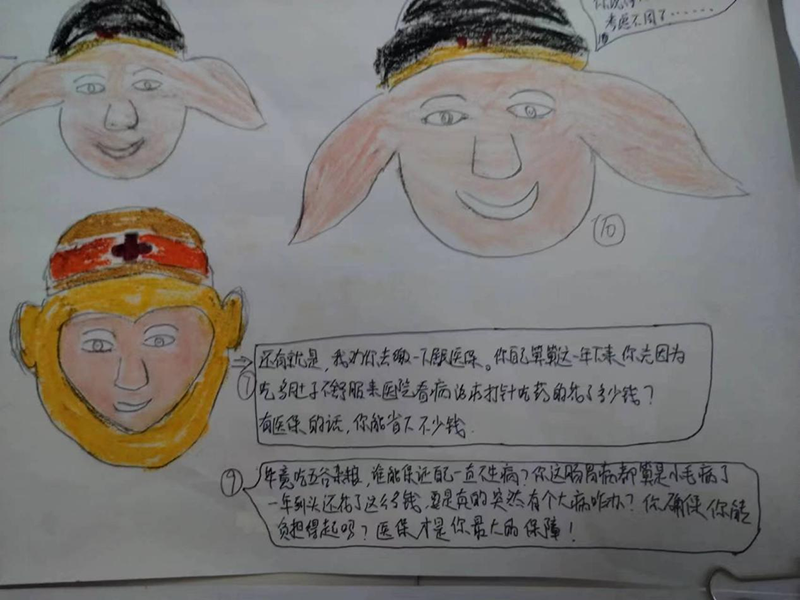 考医不同了……
⑩
⑦
还有就是，我劝你去缴一下职医保。你自己算算这一年下来你光因为
吃多肚子不舒服来医院看病治疗打针吃药的花了多少钱？
有医保的话，你能省下不少钱.
⑨
毕竟吃五谷杂粮，谁能保证自己一直不生病？你这肠胃病都算是小毛病了
一年到头还花了这么多钱，要是真的突然有个大病咋办？你确保你能
负担得起吗？医保才是你最大的保障！